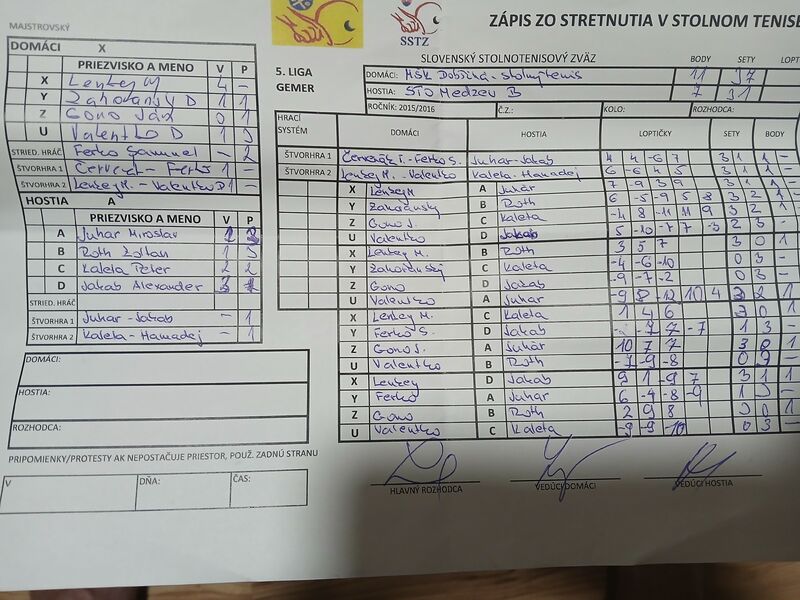 MAJSTROVSKÝ
DOMÁCI X
PRIEZVISKO A MENO V P
X Lenkey M 4 –
Y Zahoranský D 1 1
Z Gono Ján 0 1
U Valentko D 1 3
STRIED. HRÁČ Ferko Samuel – 2
ŠTVORHRA 1 Červenák - Ferko 1 –
ŠTVORHRA 2 Lenkey M. - Valentko D 1 –
HOSTIA A
PRIEZVISKO A MENO V P
A Juhar Miroslav
B Roth Zoltan 1 3
C Kaleta Peter 2 2
D Jakab Alexander
STRIED. HRÁČ
ŠTVORHRA 1 Juhar - Jakab – 1
ŠTVORHRA 2 Kaleta - Hamadej – 1
DOMÁCI:
HOSTIA:
ROZHODCA:
PRIPOMIENKY/PROTESTY AK NEPOSTAČUJE PRIESTOR, POUŽ. ZADNÚ STRANU
V DŇA: ČAS:
SSTZ
ZÁPIS ZO STRETNUTIA V STOLNOM TENISE
SLOVENSKÝ STOLNOTENISOVÝ ZVÄZ BODY SETY LOPT
5. LIGA
GEMER
DOMÁCI: MŠK Dobšiná - stolný tenis 11 37
HOSTIA: STO Medzev B 7 31
ROČNÍK: 2015/2016 Č.Z.: KOLO: ROZHODCA:
HRACÍ SYSTÉM DOMÁCI HOSTIA LOPTIČKY SETY BODY
ŠTVORHRA 1 Červenák T. - Ferko S. Juhar - Jakab 4 4 -6 7 3 1 1 –
ŠTVORHRA 2 Lenkey M. - Valentko Kaleta - Hamadej 6 -6 4 5 3 1 1 –
X Lenkey M A Juhár 7 -9 3 9 3 1 1
Y Zahoránsky B Roth 6 -5 -9 5 8 3 2 1
Z Gono J. C Kaleta -4 8 -11 11 9 3 2 1
U Valentko D Jakab 5 -10 -7 7 -3 2 3 –
X Lenkey M. B Roth 3 5 7 3 0 1
Y Zahoranský C Kaleta -4 -6 -10 0 3 –
Z Gono D Jakab -9 -7 -2 0 3 –
U Valentko A Juhar -9 8 -12 10 4 3 2 1
X Lenkey M. C Kaleta 1 4 6 3 0 1
Y Ferko S. D Jakab 7 -7 1 3 –
Z Gono J. A Juhár 10 7 7 3 0 1
U Valentko B Roth -7 -9 -8 0 3 –
X Lenkey D Jakab 9 1 -9 7 3 1 1
Y Ferko A Juhar 6 -4 -8 -9 1 3 –
Z Gono B Roth 2 9 8 3 0 1
U Valentko C Kaleta -9 -9 -10 0 3 –
HLAVNÝ ROZHODCA VEDÚCI DOMÁCI VEDÚCI HOSTIA